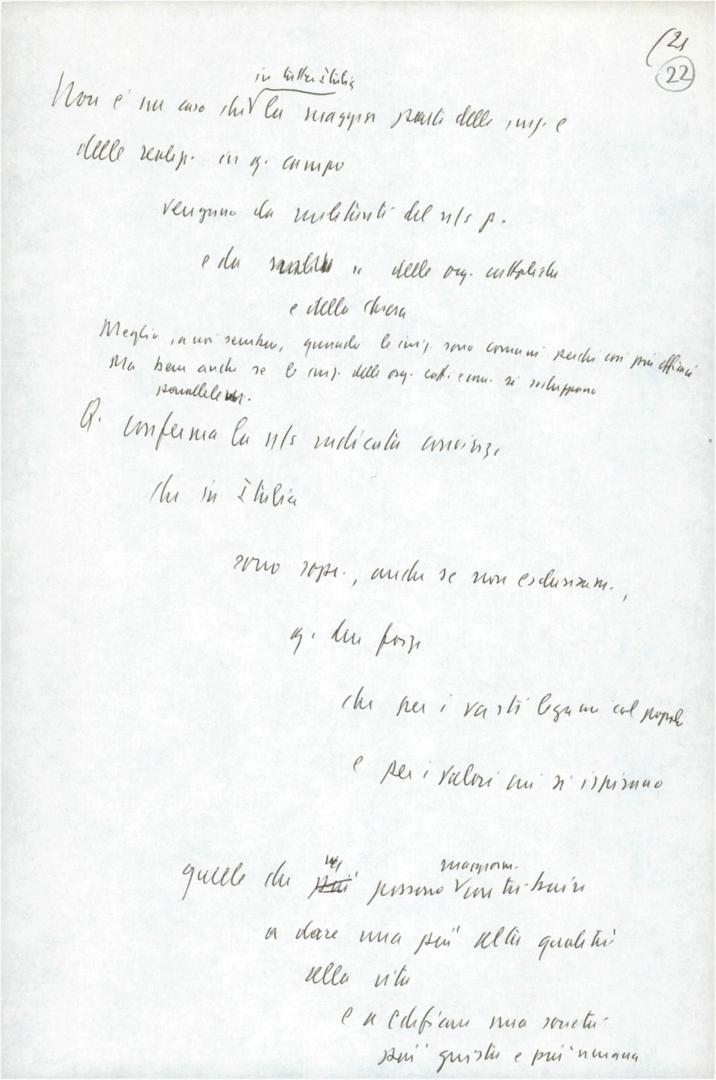 (21
22
in tutta Italia
Non è un caso che la maggior parte delle iniz. e
delle realizz. in q. campo
vengano da militanti del n/s p.
e da " delle org. cattoliche
e della chiesa
Meglio, a noi sembra, quando le iniz. sono comuni perché così più efficaci
Ma bene anche se le iniz. delle org. catt. e com. si sviluppano
parallelam.
Q. conferma la n/s radicata convinz.
che in Italia
sono sopr., anche se non esclusivam.,
q. due forze
che per i vasti legami col popolo
e per i valori cui si ispirano
quelle che possono contribuire
maggiorm.
a dare una più alta qualità
alla vita
e a edificare una società
più giusta e più umana